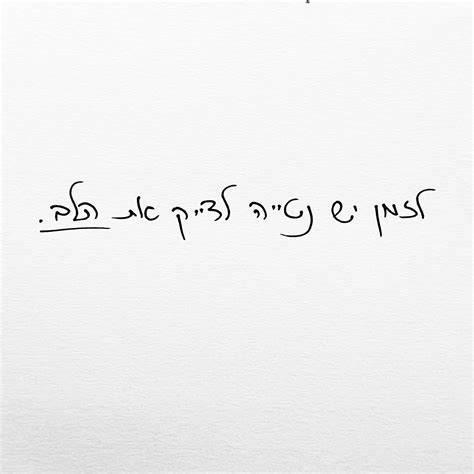 לזמן יש נטייה לדייק את הלב.